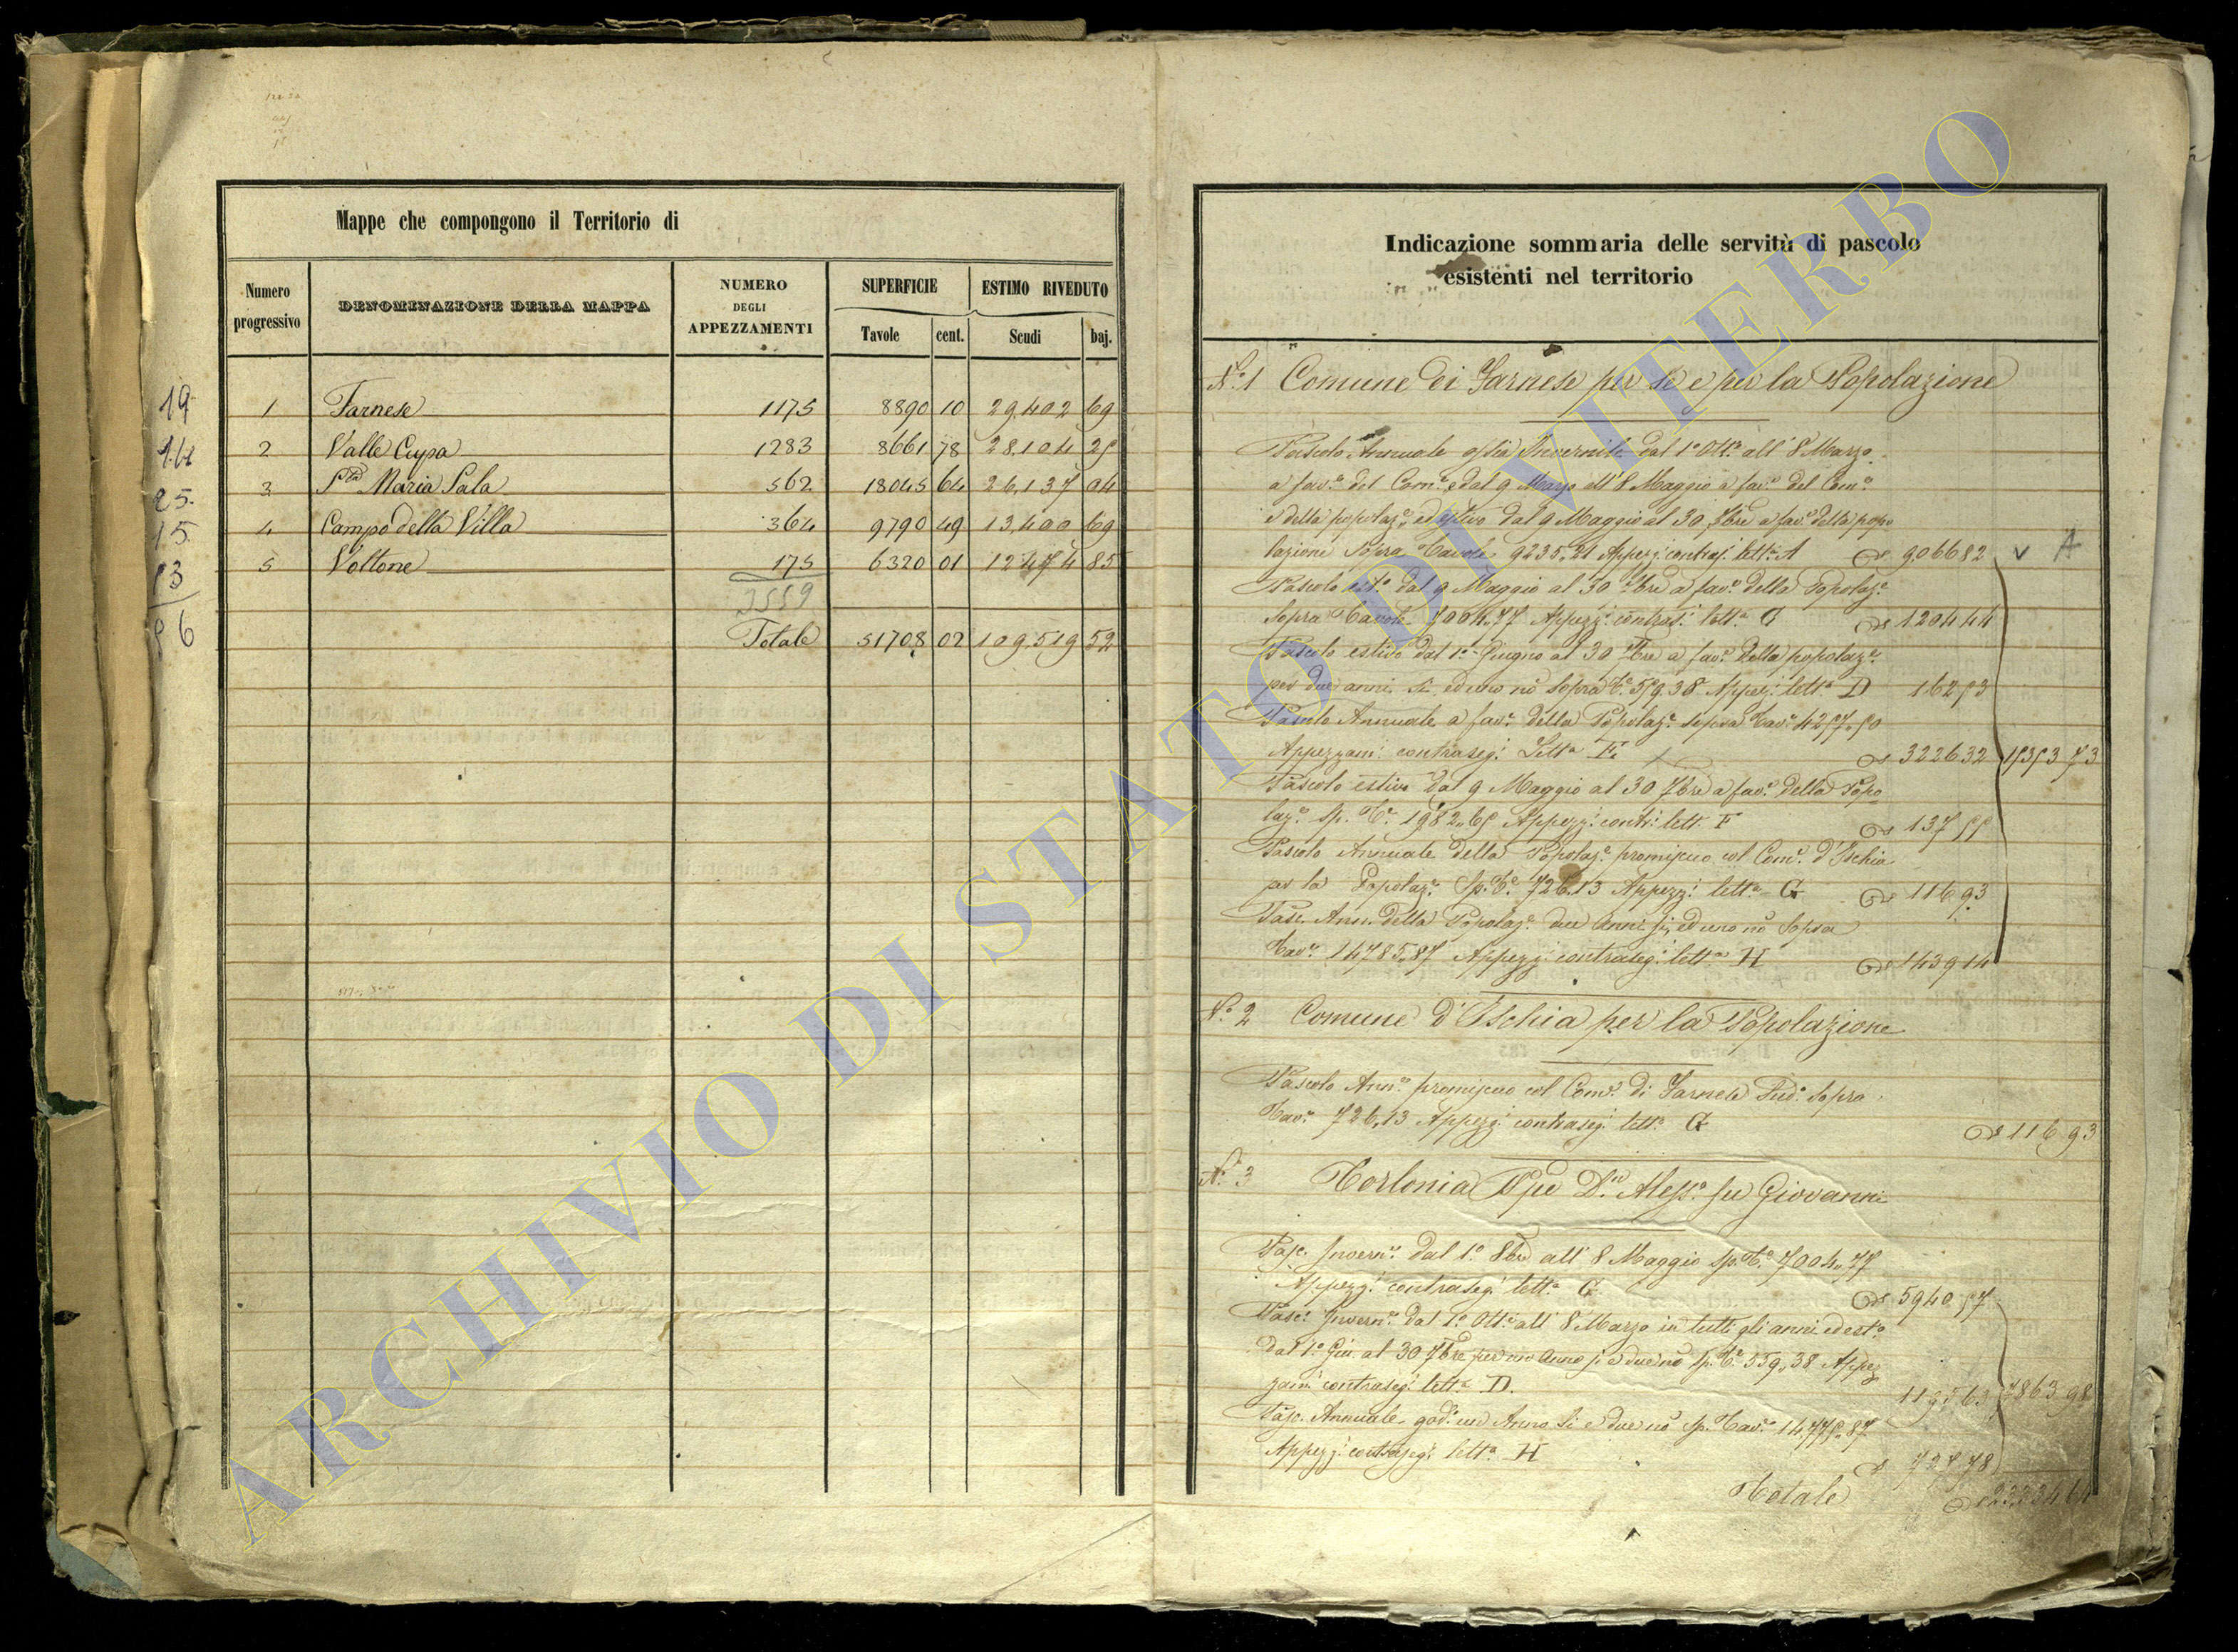 Mappe che compongono il Territorio di
Numero progressivo
DENOMINAZIONE DELLA MAPPA
NUMERO DEGLI APPEZZAMENTI
SUPERFICIE
ESTIMO RIVEDUTO
Tavole cent. Scudi baj.
19 1 Farnese 1175 8890 10 29.402 69
2 Valle Cupa 1283 8661 78 28.104 25
25 3 S.ta Maria Sala 562 18045 64 26.137 04
15 4 Campo della Villa 364 9790 49 13.400 69
13 5 Voltone 175 6320 01 12474 85
3559
Totale 51708 02 109.519 52
Indicazione sommaria delle servitù di pascolo
esistenti nel territorio
N.º 1 Comune di Farnese per se e per la Popolazione
Pascolo Annuale ossia Invernile dal 1º Ott.e all' 8 Marzo
a fav.e del Com.e e dal 9 Marzo all' 8 Maggio a fav.e del Com.e
e della popolaz.e ed estivo dal 9 Maggio al 30 7bre a fav.e della popo
lazione sopra Tavole 9235,21 Appezz.i contras.i lett.a A 906682 v A
Pascolo est.o dal 9 Maggio al 30 7bre a fav.e della Popolaz.e
Sopra Tavole 7004.77 Appezz.i contras.i lett.a C 120444
Pascolo estivo dal 1º Giugno al 30 7bre a fav.e della popolaz.e
per due anni si, ed uno nò sopra T.e 559.38 Appez.i lett.a D 16253
Pascolo Annuale a fav.e della Popolaz.e sopra Tav.e 4257.50
Appezzam.i contraseg.i Lett.a E 322632 1535373
Pascolo estivo dal 9 Maggio al 30 7bre a fav.e della Popo
laz.e Sp. T.e 1982.65 Appezz.i contr.i lett. F 13755
Pascolo Annuale della Popolaz.e promiscuo col Com.e d'Ischia
per la Popolaz.e Sp. T.e 726.13 Appezz.i lett.a G 11693
Pasc. Ann. della Popolaz.e due Anni si, ed uno nò Sopra
Tav.e 14785.87 Appezz.i contraseg.i lett.a H 143914
N.º 2 Comune d'Ischia per la Popolazione
Pascolo Ann.e promiscuo col Com.e di Farnese Sud.o Sopra
Tav.e 726.13 Appezz.i contraseg.i lett.a G 11693
N.º 3 Torlonia Ppe D.n Aless.o fu Giovanni
Pasc. Invern.e dal 1º 8bre all' 8 Maggio sp. T.e 7004.77
Appezz.i contraseg.i lett.a C 594057
Pasc. Invern.e dal 1º Ott.e all' 8 Marzo in tutti gli anni ed est.o
dal 1º Giu. al 30 7bre per uno Anno si e due nò sp. T.e 559.38 Appez
zam.i contraseg.i lett.a D. 786398
Pasc. Annuale god.e un Anno si e due nò sp. Tav.e 14775.87
Appezz.i contraseg.i lett.a H
Totale
ARCHIVIO DI STATO DI VITERBO